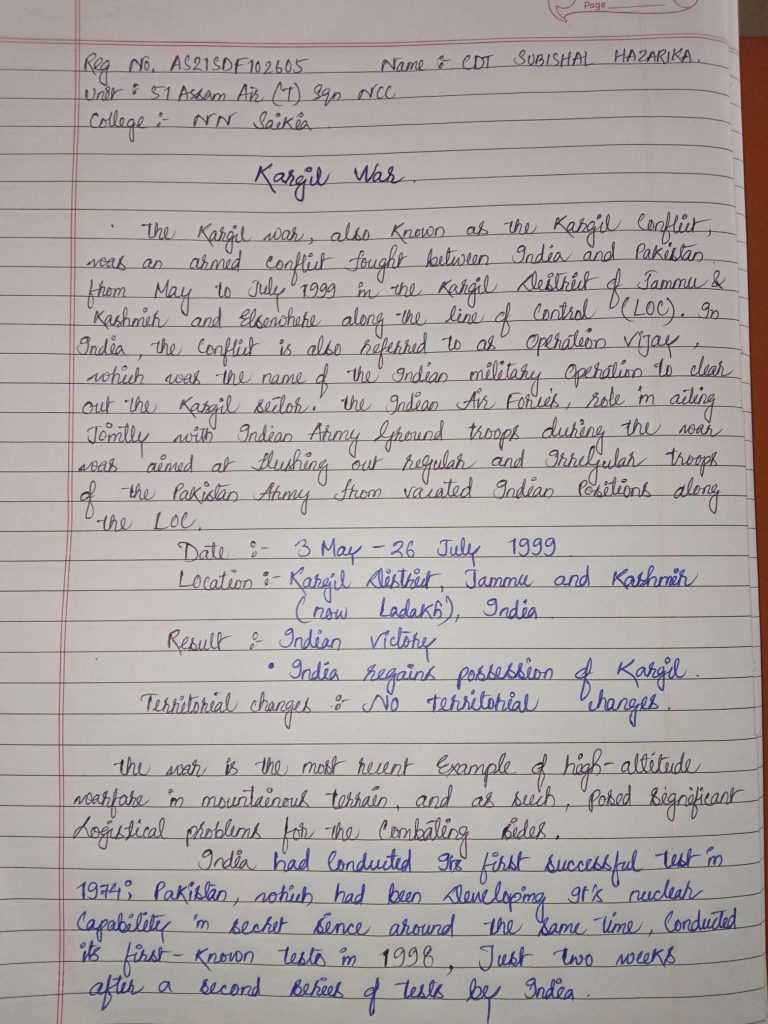 Page
Reg No. AS21SDF102605 Name :- CDT SUBISHAL HAZARIKA.
Unit : 51 Assam Air (T) Sqn NCC
College :- NN Saikia
Kargil War.
The Kargil war, also Known as the Kargil Conflict,
was an armed conflict fought between India and Pakistan
from May to July 1999 in the Kargil District of Jammu &
Kashmir and Elsewhere along the line of Control (LOC). In
India, the Conflict is also referred to as Operation Vijay,
which was the name of the Indian military Operation to clear
out the Kargil sector. The Indian Air Forces, role in acting
Jointly with Indian Army Ground troops during the war
was aimed at flushing out regular and Irregular troops
of the Pakistan Army from vacated Indian Positions along
the LOC.
Date :- 3 May - 26 July 1999
Location :- Kargil District, Jammu and Kashmir
(now Ladakh), India
Result :- Indian victory
• India regains possession of Kargil.
Territorial changes :- No territorial changes.
The war is the most recent Example of high-altitude
warfare in mountainous terrain, and as such, posed significant
Logistical problems for the Combating sides.
India had Conducted Its first successful test in
1974; Pakistan, which had been Developing It's nuclear
Capability in secret sence around the same time, Conducted
its first-known tests in 1998, Just two weeks
after a second series of tests by India.